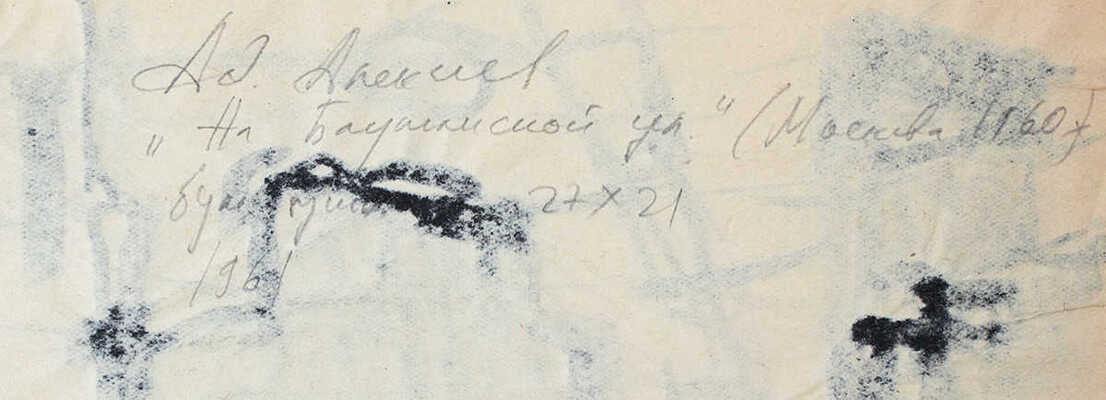 Ад. Алексеев
"На Бауманской ул." (Москва 1960 г)
бум. тушь 27 X 21
1961